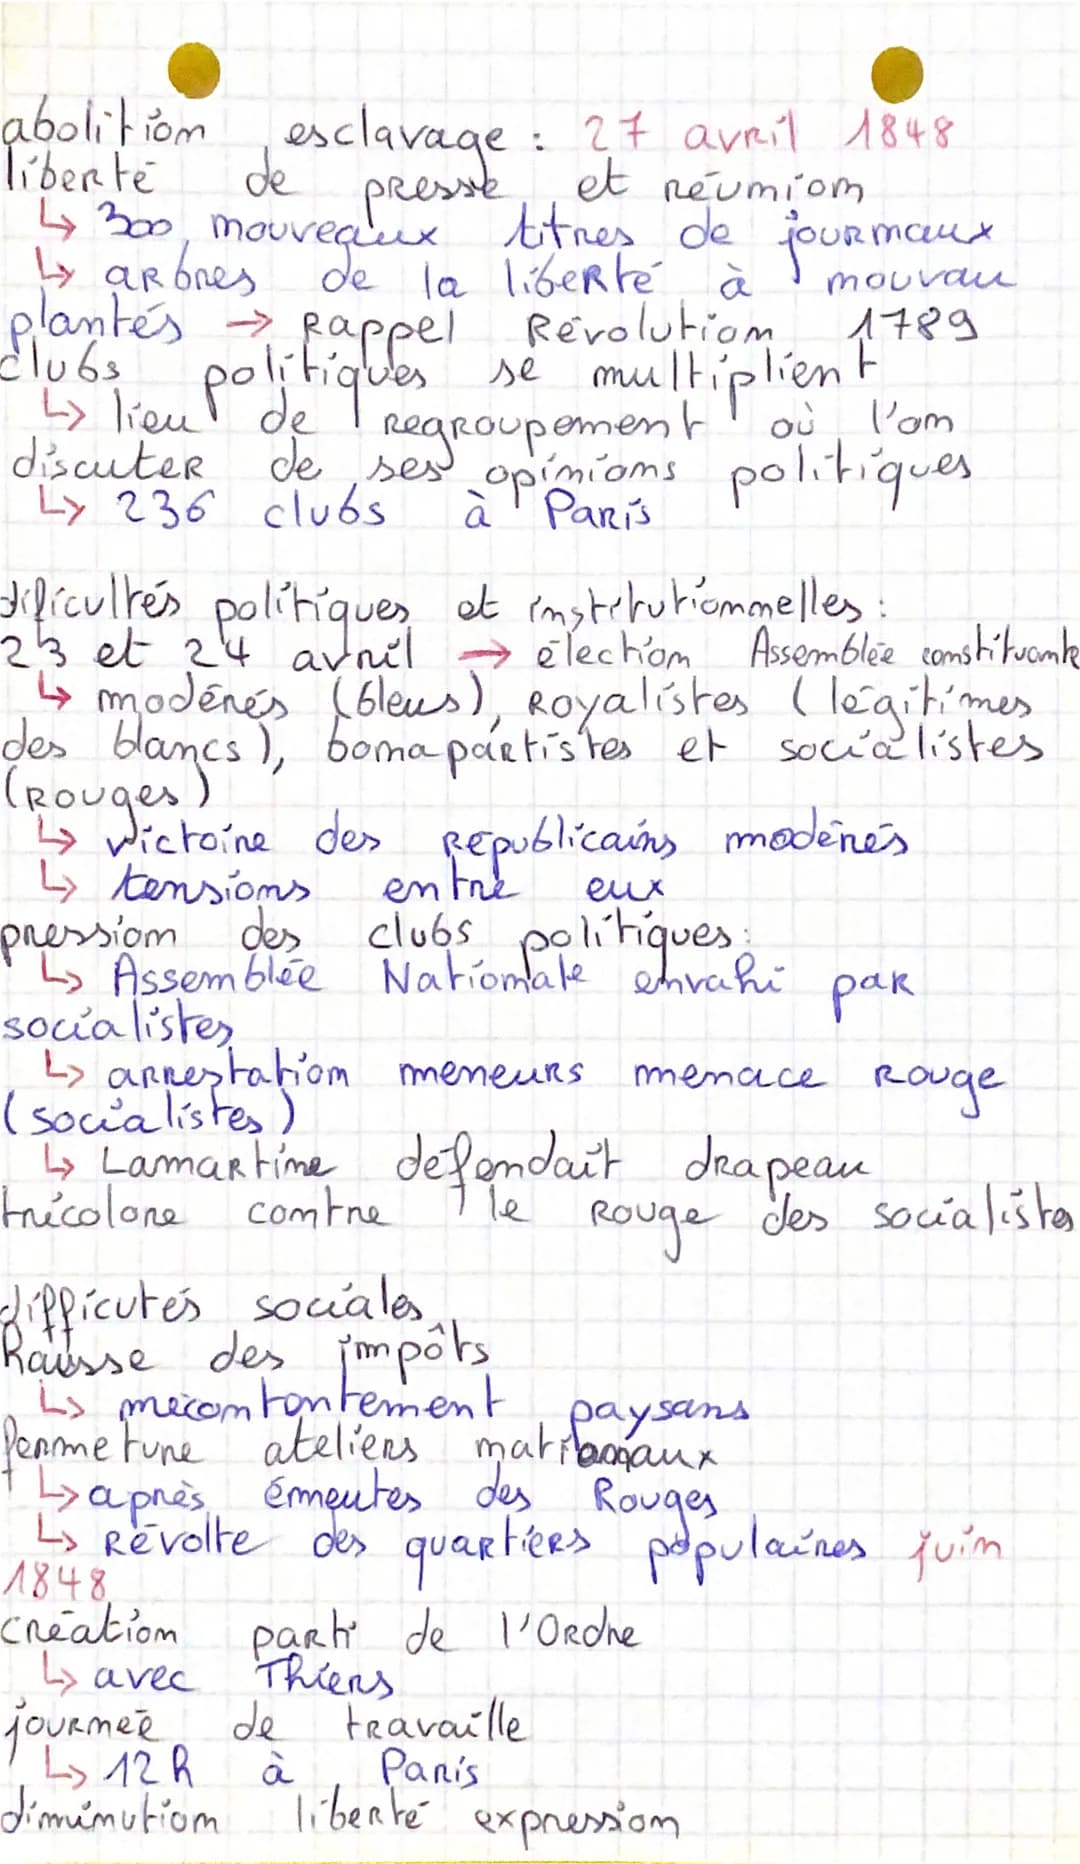 abolition esclavage : 27 avril 1848
liberté de presse et réunion
↳ 300 nouveaux titres de journaux
↳ arbres de la liberté à nouvau
plantés → Rappel Révolution 1789
clubs politiques se multiplient
↳ lieu de regroupement où l'on
discuter de ses opinions politiques
↳ 236 clubs à Paris
dificultés politiques et institutionnelles :
23 et 24 avril → élection Assemblée constituante
↳ modérés (bleus), Royalistes (légitimes
des blancs), bonapartistes et socialistes
(Rouges)
↳ victoire des Républicains modérés
↳ tensions entre eux
pression des clubs politiques :
↳ Assemblée Nationale envahi par
socialistes
↳ arrestation meneurs menace Rouge
(socialistes)
↳ Lamartine défendait drapeau
tricolore contre le Rouge des socialistes
difficutés sociales
hausse des impôts
↳ mécontontement paysans
fermeture ateliers nationaux
↳ après émeutes des Rouges
↳ Révolte des quartiers populaires juin
1848
création parti de l'Ordre
↳ avec Thiers
journée de travaille
↳ 12h à Paris
diminution liberté expression